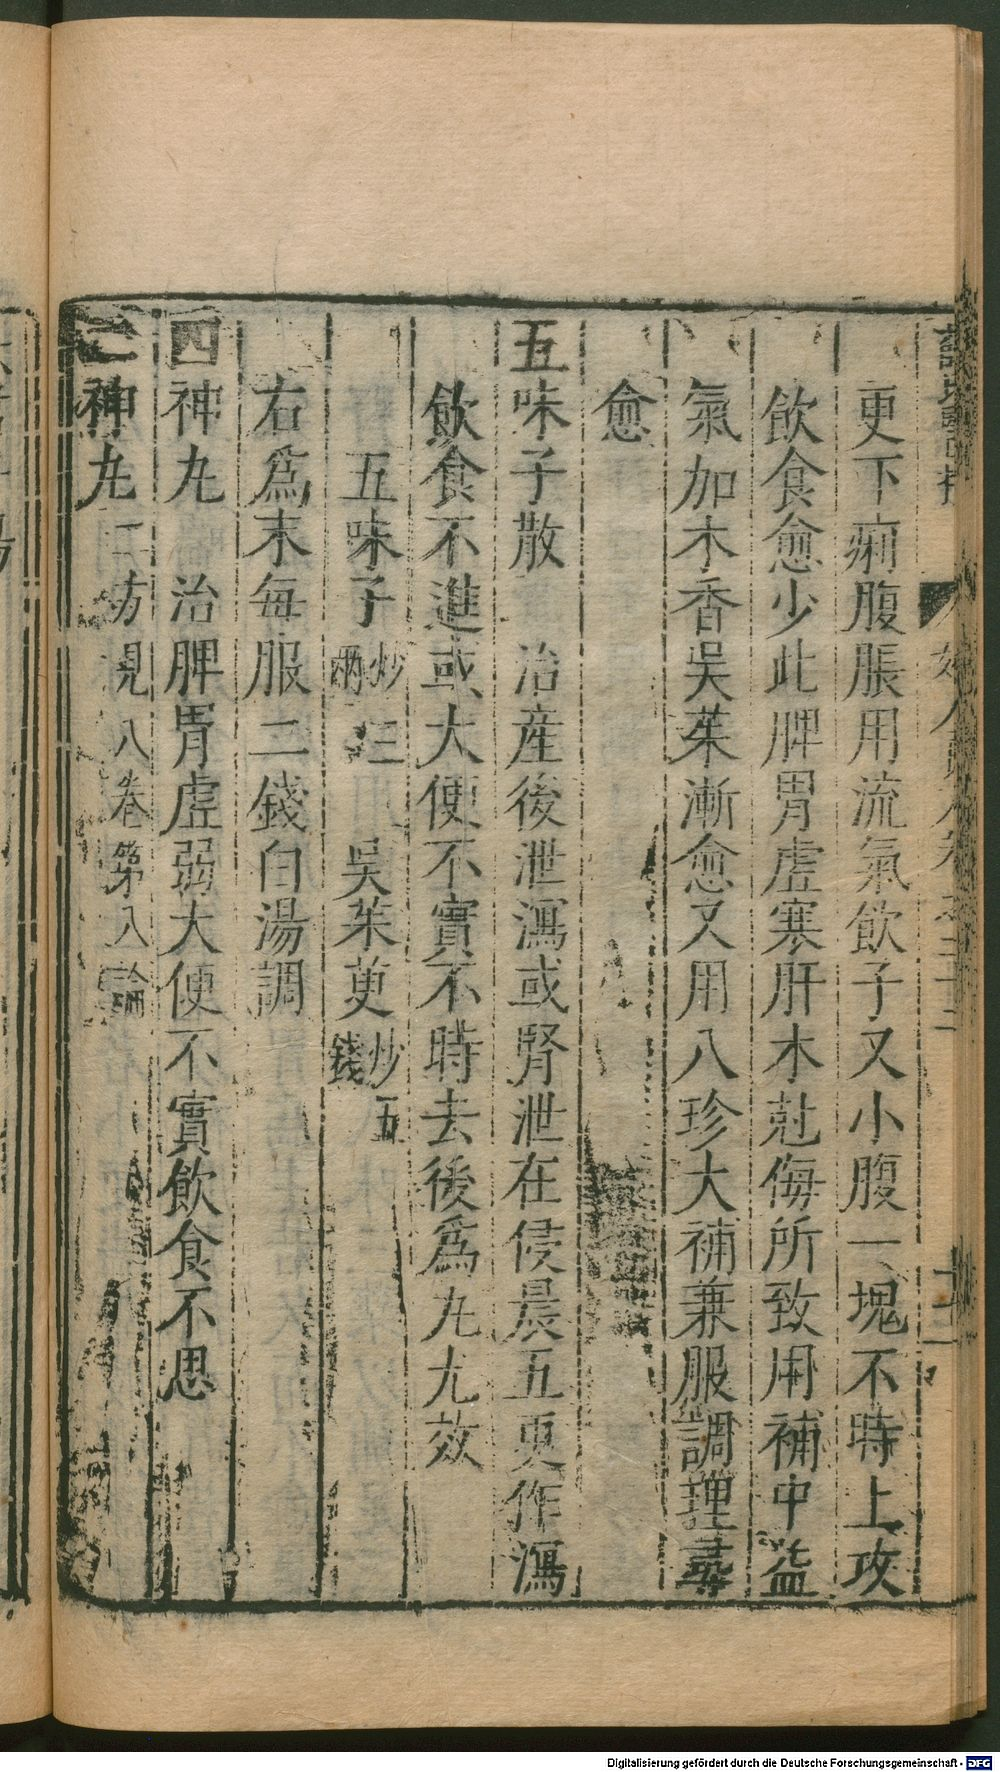 更下痢腹脹用流氣飲子又小腹一塊不時上攻
飲食愈少此脾胃虛寒肝木尅侮所致用補中益
氣加木香吳茱漸愈又用八珍大補兼服調理尋
愈
五味子散　治產後泄瀉或腎泄在侵晨五更作瀉
飲食不進或大便不實不時去後爲丸尤效
五味子炒三兩　吳茱萸炒五錢
右爲末每服二錢白湯調
四神丸　治脾胃虛弱大便不實飲食不思
二神丸二方見八卷第八論
Digitalisierung gefördert durch die Deutsche Forschungsgemeinschaft - DFG